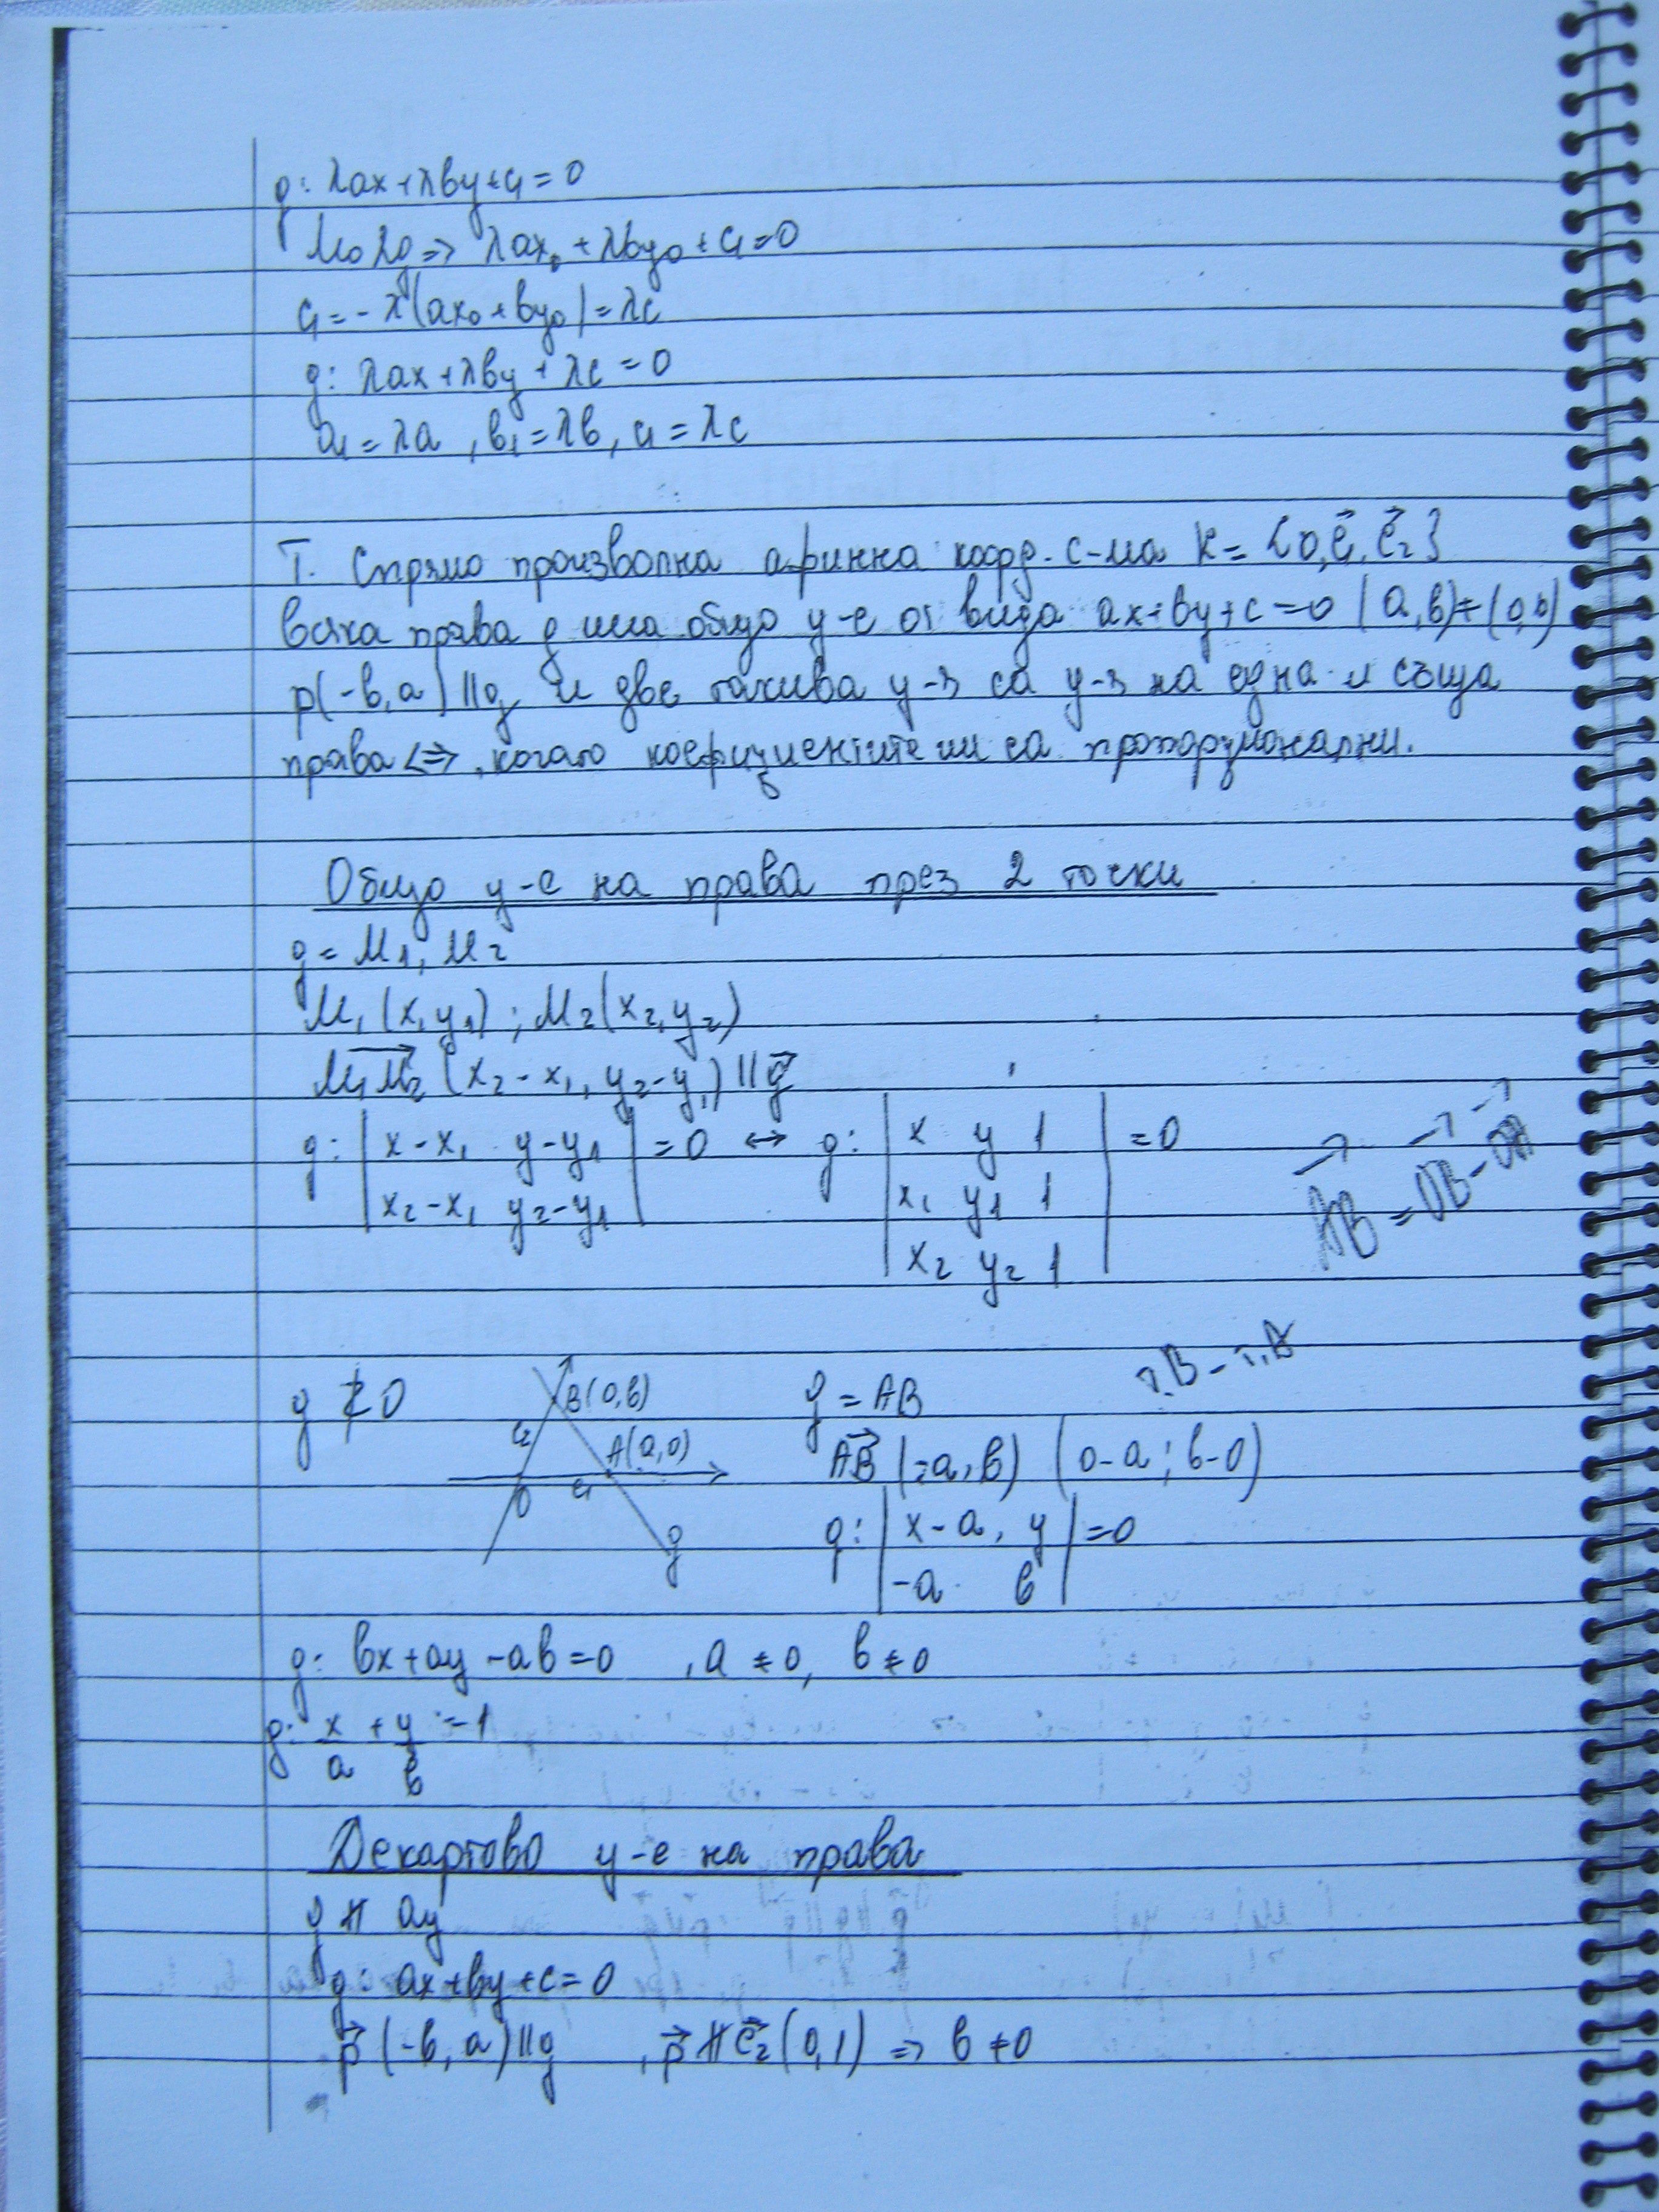 g: λax+λвy+c₁=0
M₀ Z g => λax₀ + λвy₀ + c₁=0
c₁=-λ(ax₀+вy₀)=λc
g: λax+λвy+λc=0
a₁=λa, в₁=λв, c₁=λc
Т. Спрямо произволна афинна коорд. с-ма K={O, e⃗₁, e⃗₂}
всяка права g има общо у-е от вида ax+вy+c=0 (a,в)≠(0,0)
p(-в,a)||g и две такива у-я са у-я на една и съща
права <=>, когато коефициентите им са пропорционални.
Общо у-е на права през 2 точки
g=M₁, M₂
M₁(x₁y₁); M₂(x₂,y₂)
M₁M₂(x₂-x₁, y₂-y₁)||g⃗
g: |x-x₁ y-y₁| =0 ↔ g: |x y 1| =0
|x₂-x₁ y₂-y₁| |x₁ y₁ 1|
|x₂ y₂ 1|
AB = OB - OA
т.B - т.A
g Z̸ O
B(0,в)
e₂
A(a,0)
O
e₁
g
g=AB
AB(-a,в) (0-a; в-0)
g: |x-a, y| =0
|-a в|
g: вx+ay-aв=0, a≠0, в≠0
g: x/a + y/в = 1
Декартово у-е на права
g ∦ Oy
g: ax+вy+c=0
p⃗(-в,a)||g, p⃗ ∦ e⃗₂(0,1) => в≠0